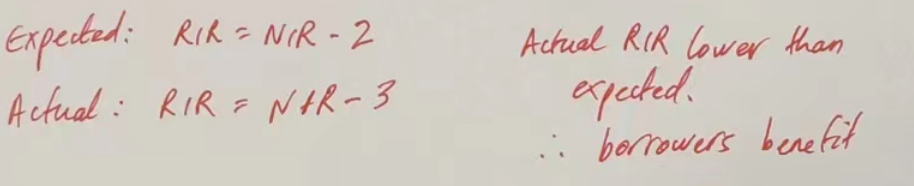 Expected: RIR = NIR - 2
Actual: RIR = NIR - 3
Actual RIR lower than
expected.
∴ borrowers benefit